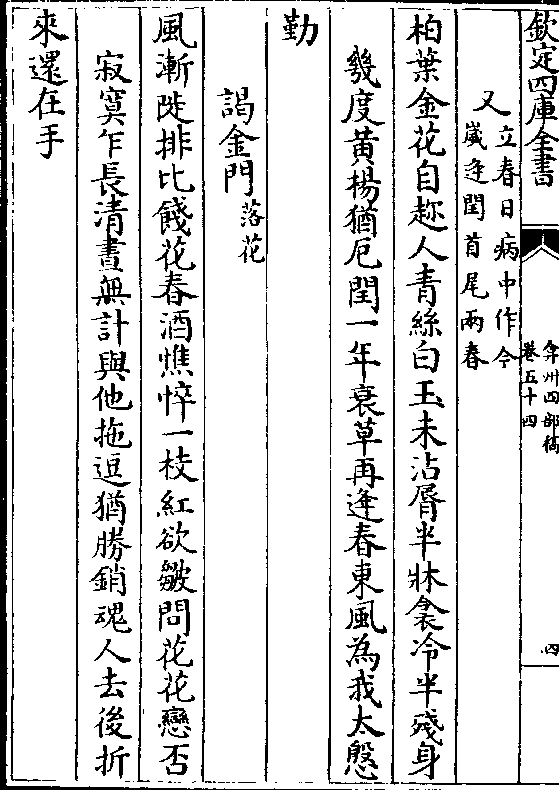 欽定四庫全書
弇州四部稿
卷五十四
四
又立春日病中作今
歲逢閏首尾兩春
柏葉金花自趂人青絲白玉未沾脣半牀衾冷半殘身
幾度黃楊猶厄閏一年衰草再逢春東風為我太慇
勤
謁金門落花
風漸陡排比餞花春酒憔悴一枝紅欲皺問花花戀否
寂寞乍長清晝無計與他拖逗猶勝銷魂人去後折
來還在手